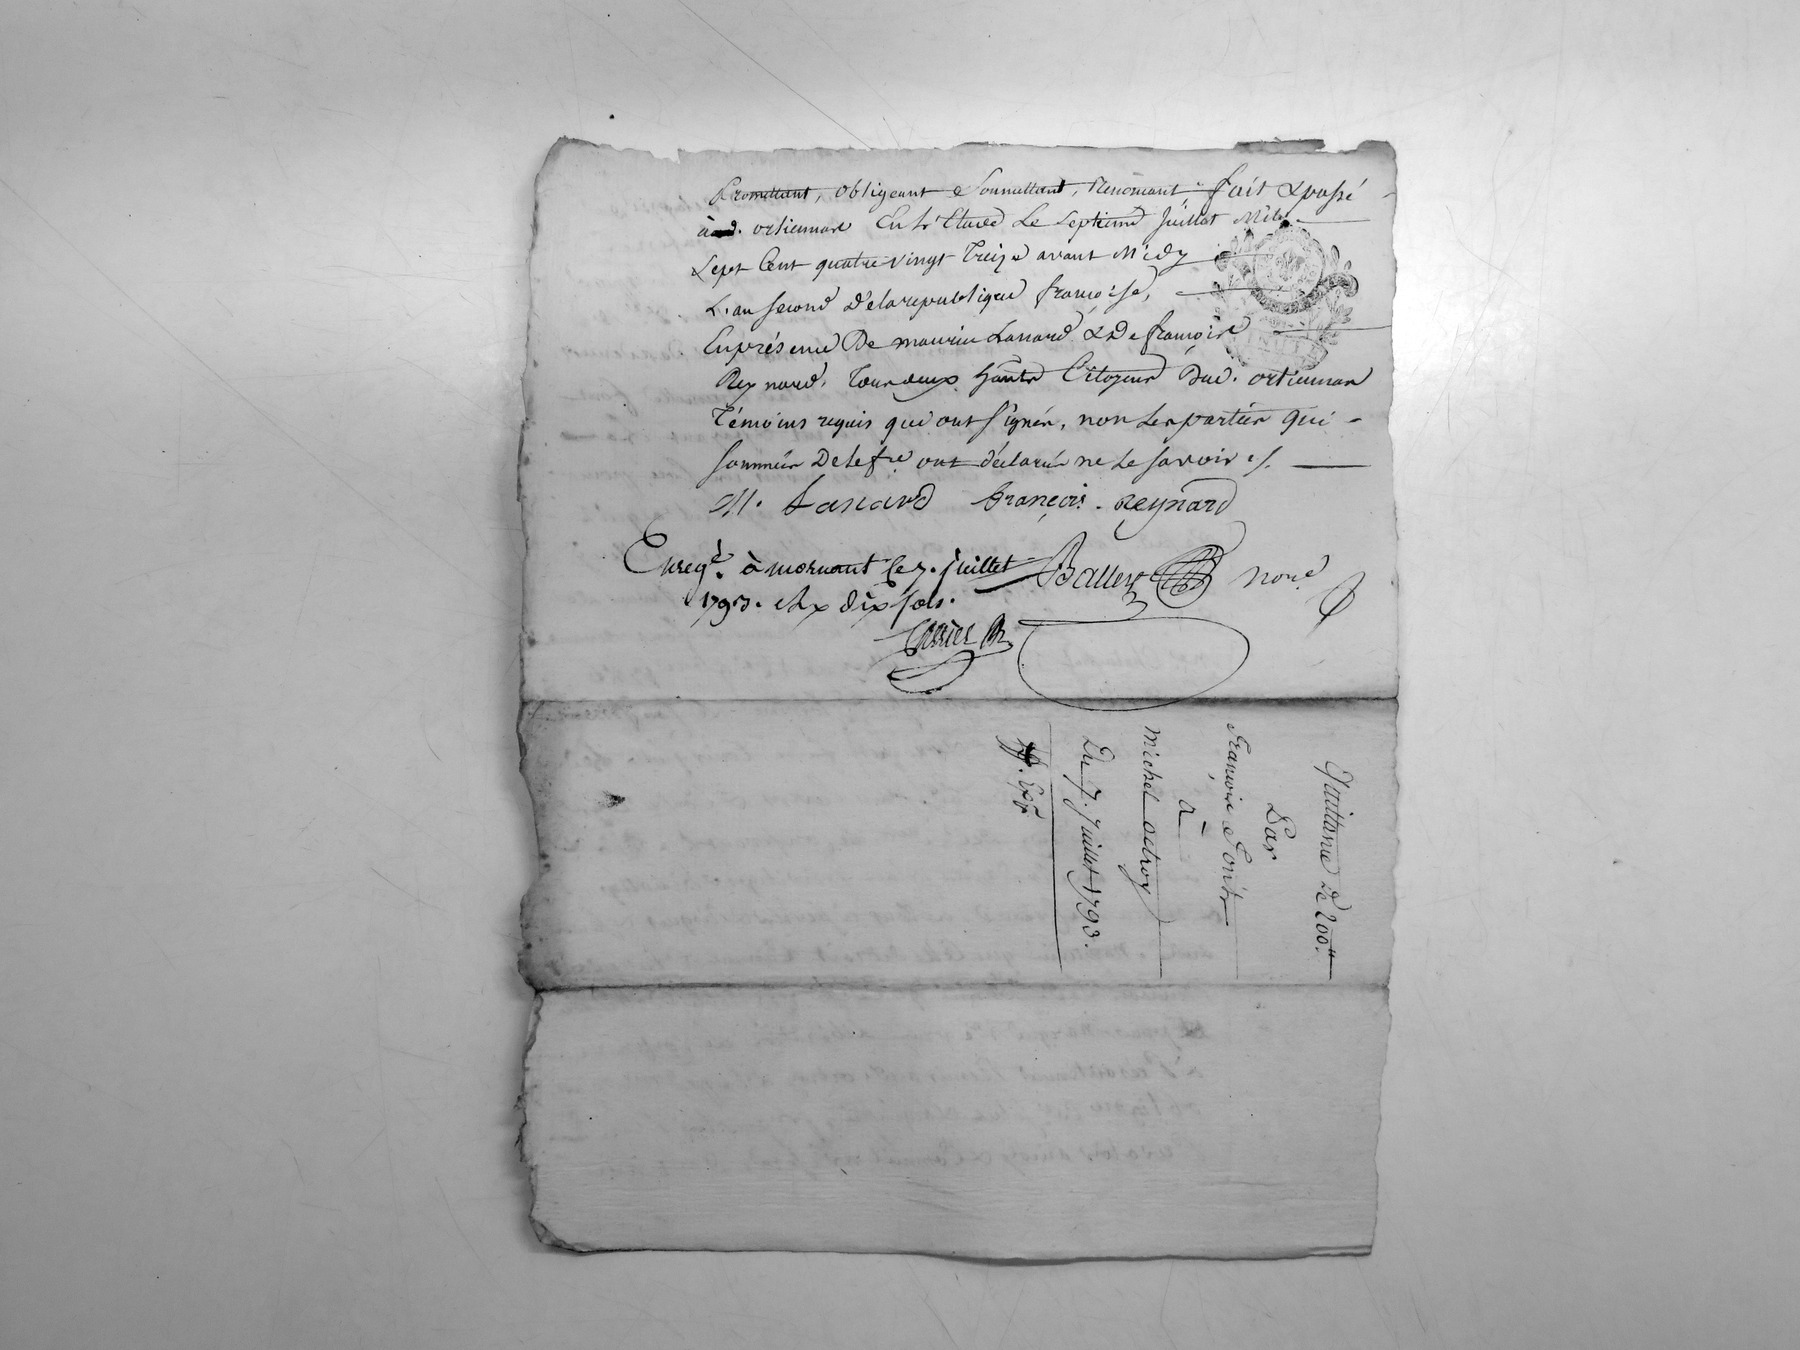 Promettant, obligeant, Soummettant, Renoncant fait & passé
à d. ortiemont En l'Etude Le Septieme Juillet Mil
Sept Cent quatre vingt Treize avant Midy
L'an Second de la republique francoise,
En présence De maurice Lanard & De francois
Reynard, Tous deux Citoyens Dud.
Témoins requis qui ont signés, non les parties qui
sommées De le fre ont déclarés ne le savoir ./.
M. Lanard François . Reynard
Enregé. à mornant le 7. juillet Ballery noue
1793. dix sols.
Quittance De 200.tt
Par
François
à
michel
Du 7. Juillet 1793.